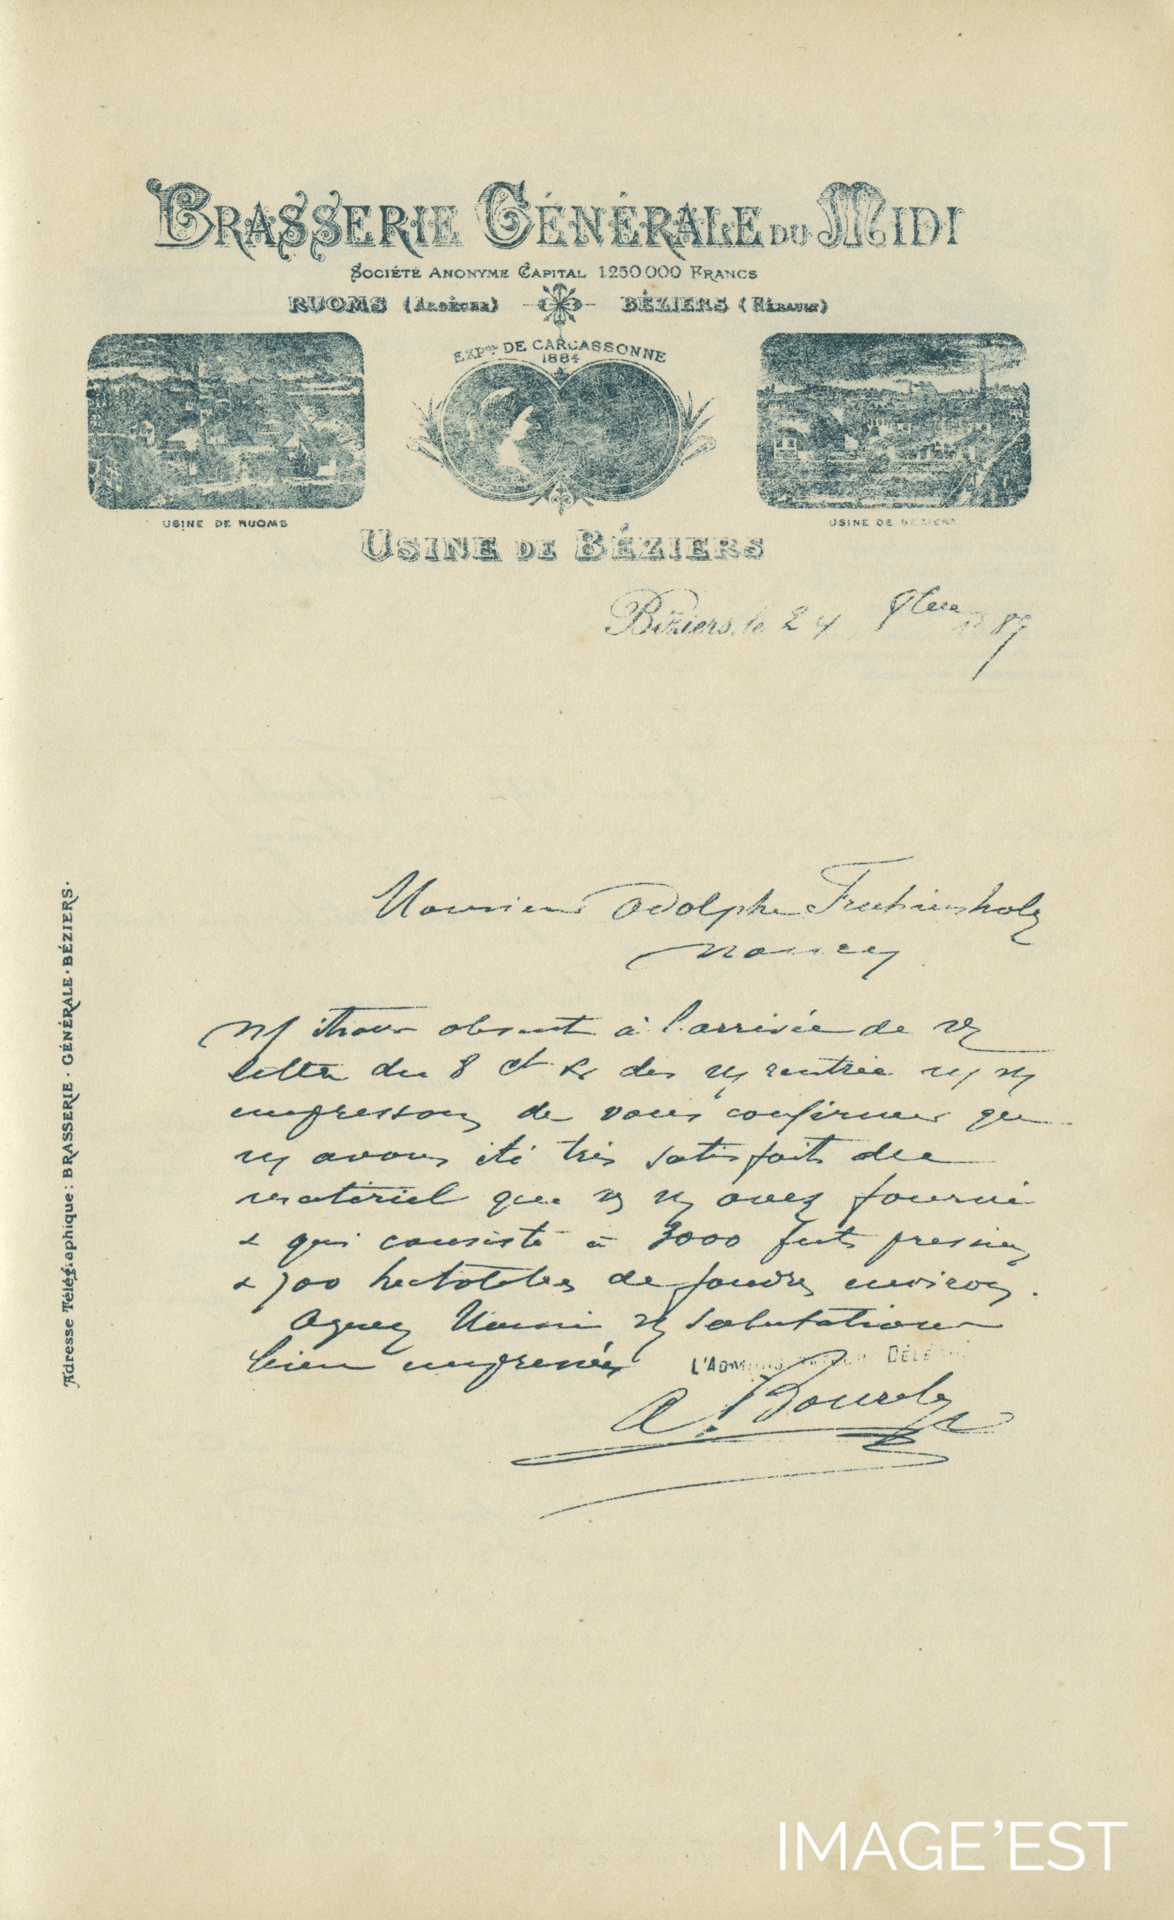 BRASSERIE GÉNÉRALE DU MIDI
SOCIÉTÉ ANONYME CAPITAL 1250000 FRANCS
RUOMS (ARDÈCHE) BÉZIERS (HÉRAULT)
EXP.on DE CARCASSONNE
1884
USINE DE RUOMS
USINE DE BÉZIERS
USINE DE BÉZIERS
Béziers, le 24 87
Monsieur Adolphe Fruhinsholz
Nancy
étions absent à l'arrivée de
lettre du 8 ct & dès rentrée
empressons de vous confirmer que
avons été très satisfaits du
matériel que avez fourni
& qui consiste à 3000 futs
& 700 hectolitres de foudres environ.
Agréez salutations
bien empressées L'ADMINISTRATEUR DÉLÉGUÉ
A.
Adresse Télégraphique: BRASSERIE · GÉNÉRALE · BÉZIERS.
IMAGE'EST